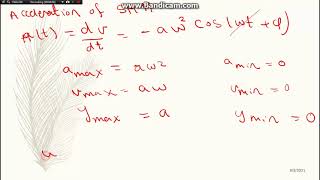 www.Bandicam.com
Acceleration of SHM
A(t) = dv/dt = -aω² cos(ωt + φ)
a max = aω² a min = 0
v max = aω v min = 0
y max = a y min = 0